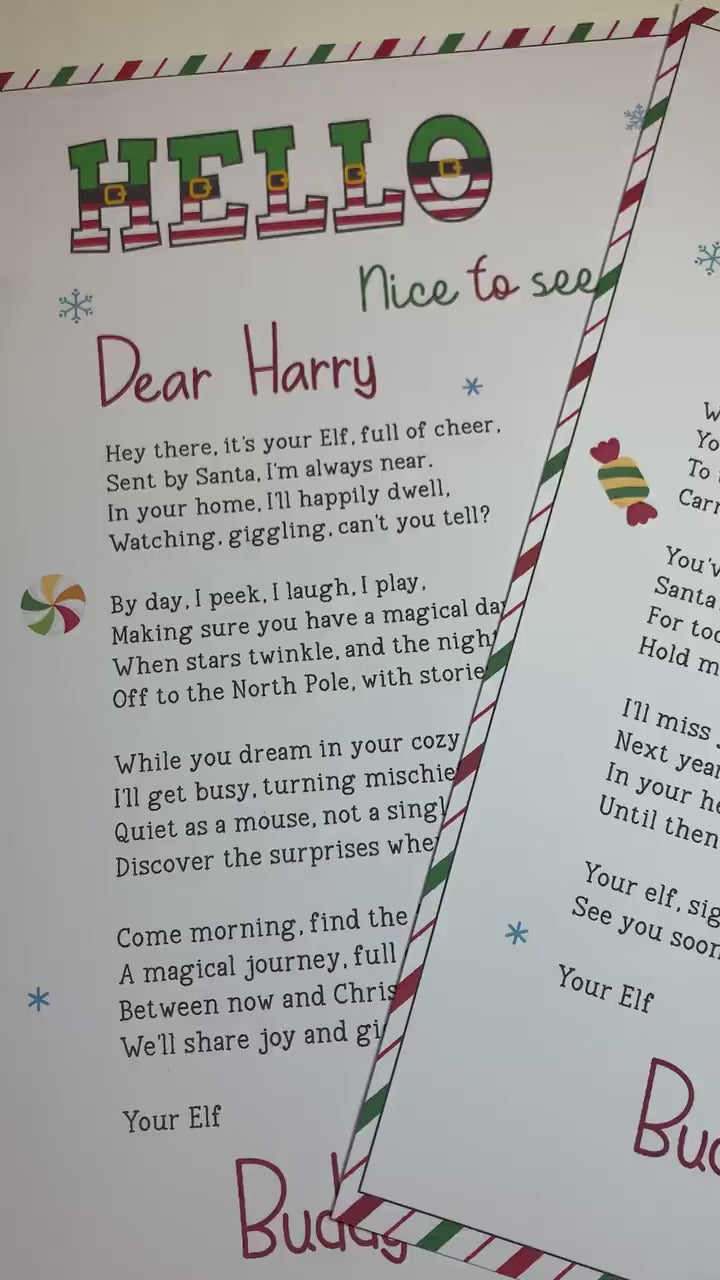 HELLO
Nice to see
Dear Harry
Hey there, it's your Elf, full of cheer,
Sent by Santa, I'm always near.
In your home, I'll happily dwell,
Watching, giggling, can't you tell?
By day, I peek, I laugh, I play,
Making sure you have a magical day
When stars twinkle, and the night
Off to the North Pole, with stories
While you dream in your cozy
I'll get busy, turning mischie
Quiet as a mouse, not a singl
Discover the surprises whe
Come morning, find the
A magical journey, full
Between now and Chris
We'll share joy and gi
Your Elf
Buddy
W
Yo
To
Carr
You'v
Santa
For too
Hold m
I'll miss
Next year
In your he
Until then
Your elf, sig
See you soon
Your Elf
Bud